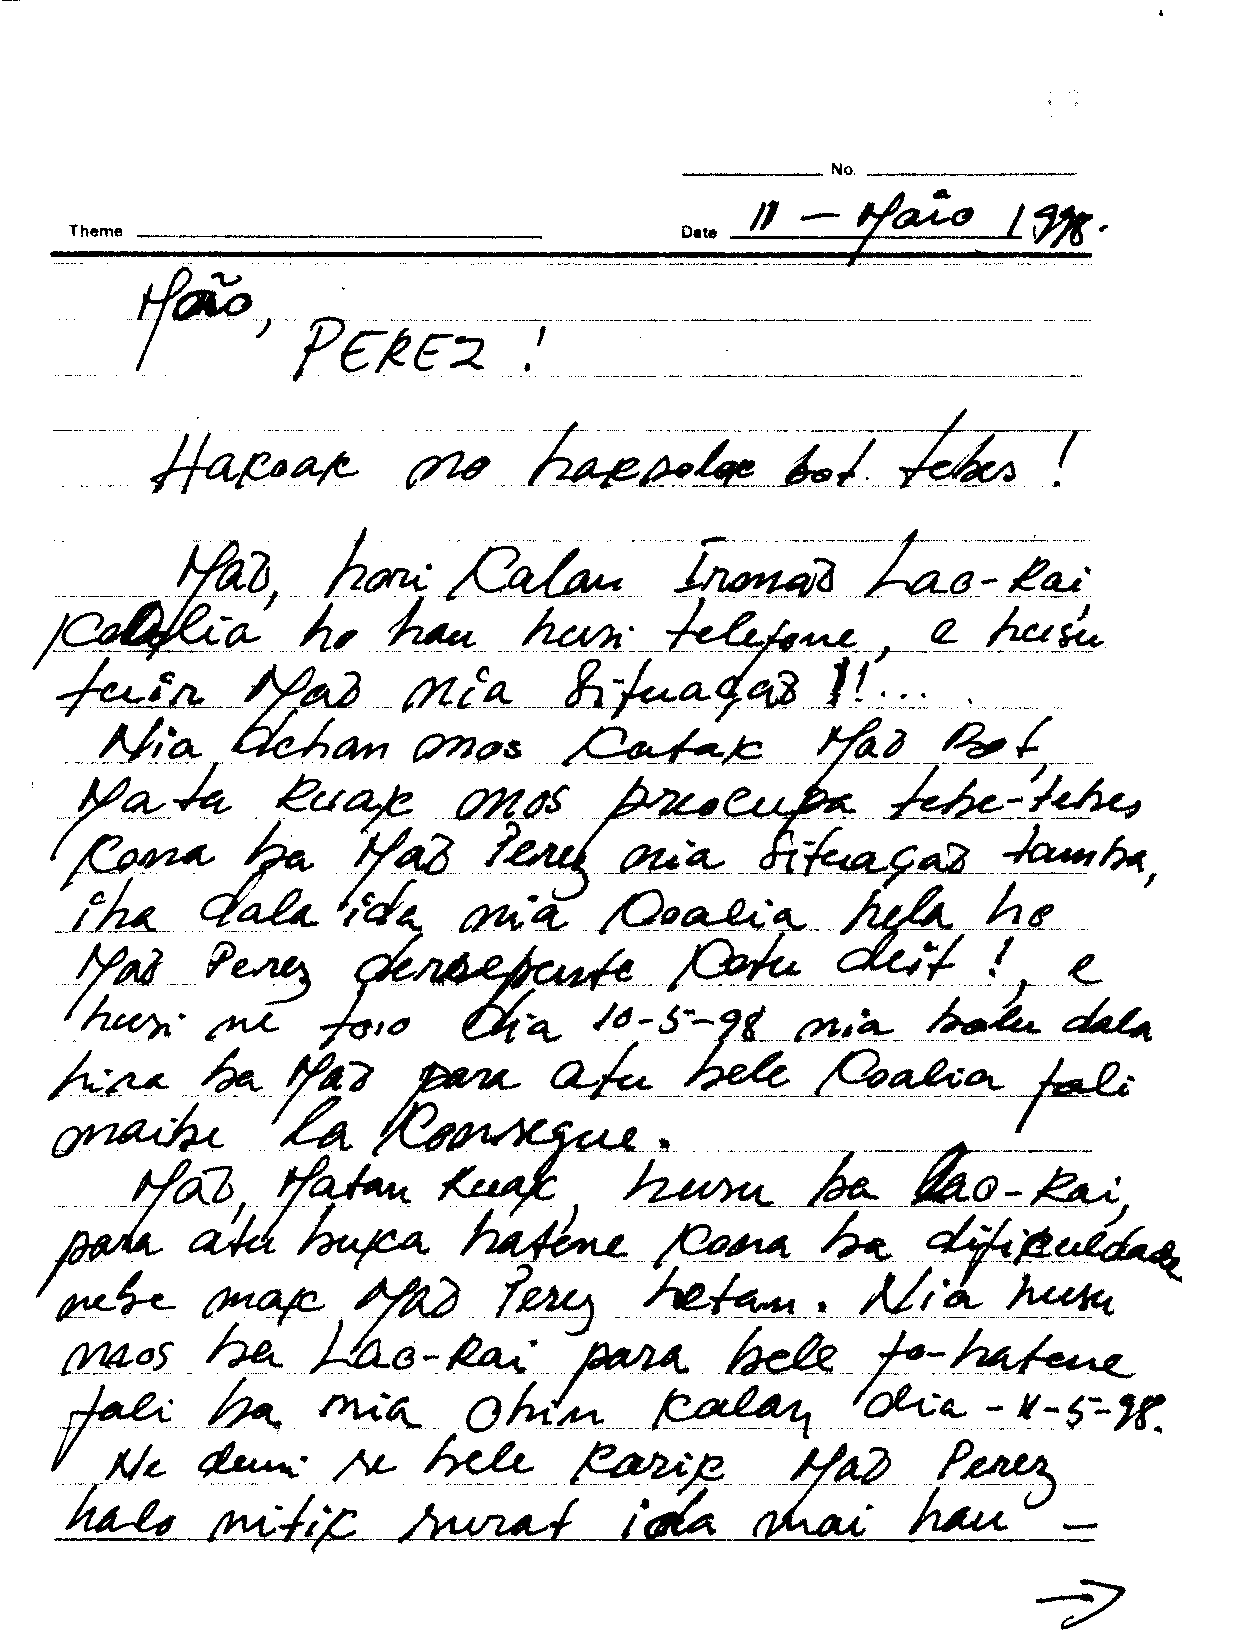 No.
Theme Date 11 - Maio 1998.
Mão,
PEREZ!
Hakoak no haksolok bot tebes!
Maõ, hori Kalan Irmaõ Lao-Rai
Koalia ho hau husi telefone, e husu
tuir Maõ nia Situaçaõ!!...
Nia dehan mos Katak Maõ Bot,
Mata Ruak mos preocupa tebe-tebes
Kona ba Maõ Perez nia Situaçaõ tamba,
iha dala ida nia Koalia hela ho
Maõ Perez derrepente Kotu deit!, e
husi ne foio dia 10-5-98 nia bolu dala
hira ba Maõ para atu bele Koalia fali
maibe la Konsegue.
Maõ, Matan Ruak, husu ba Lao-Rai,
para atu buka hatene Kona ba dificuldade
nebe mak Maõ Perez hetan. Nia husu
mos ba Lao-Rai para bele fo-hatene
fali ba nia ohin kalan, dia - 11-5-98.
Ne duni se bele Karik Maõ Perez
halo nitik surat ida mai hau -
→